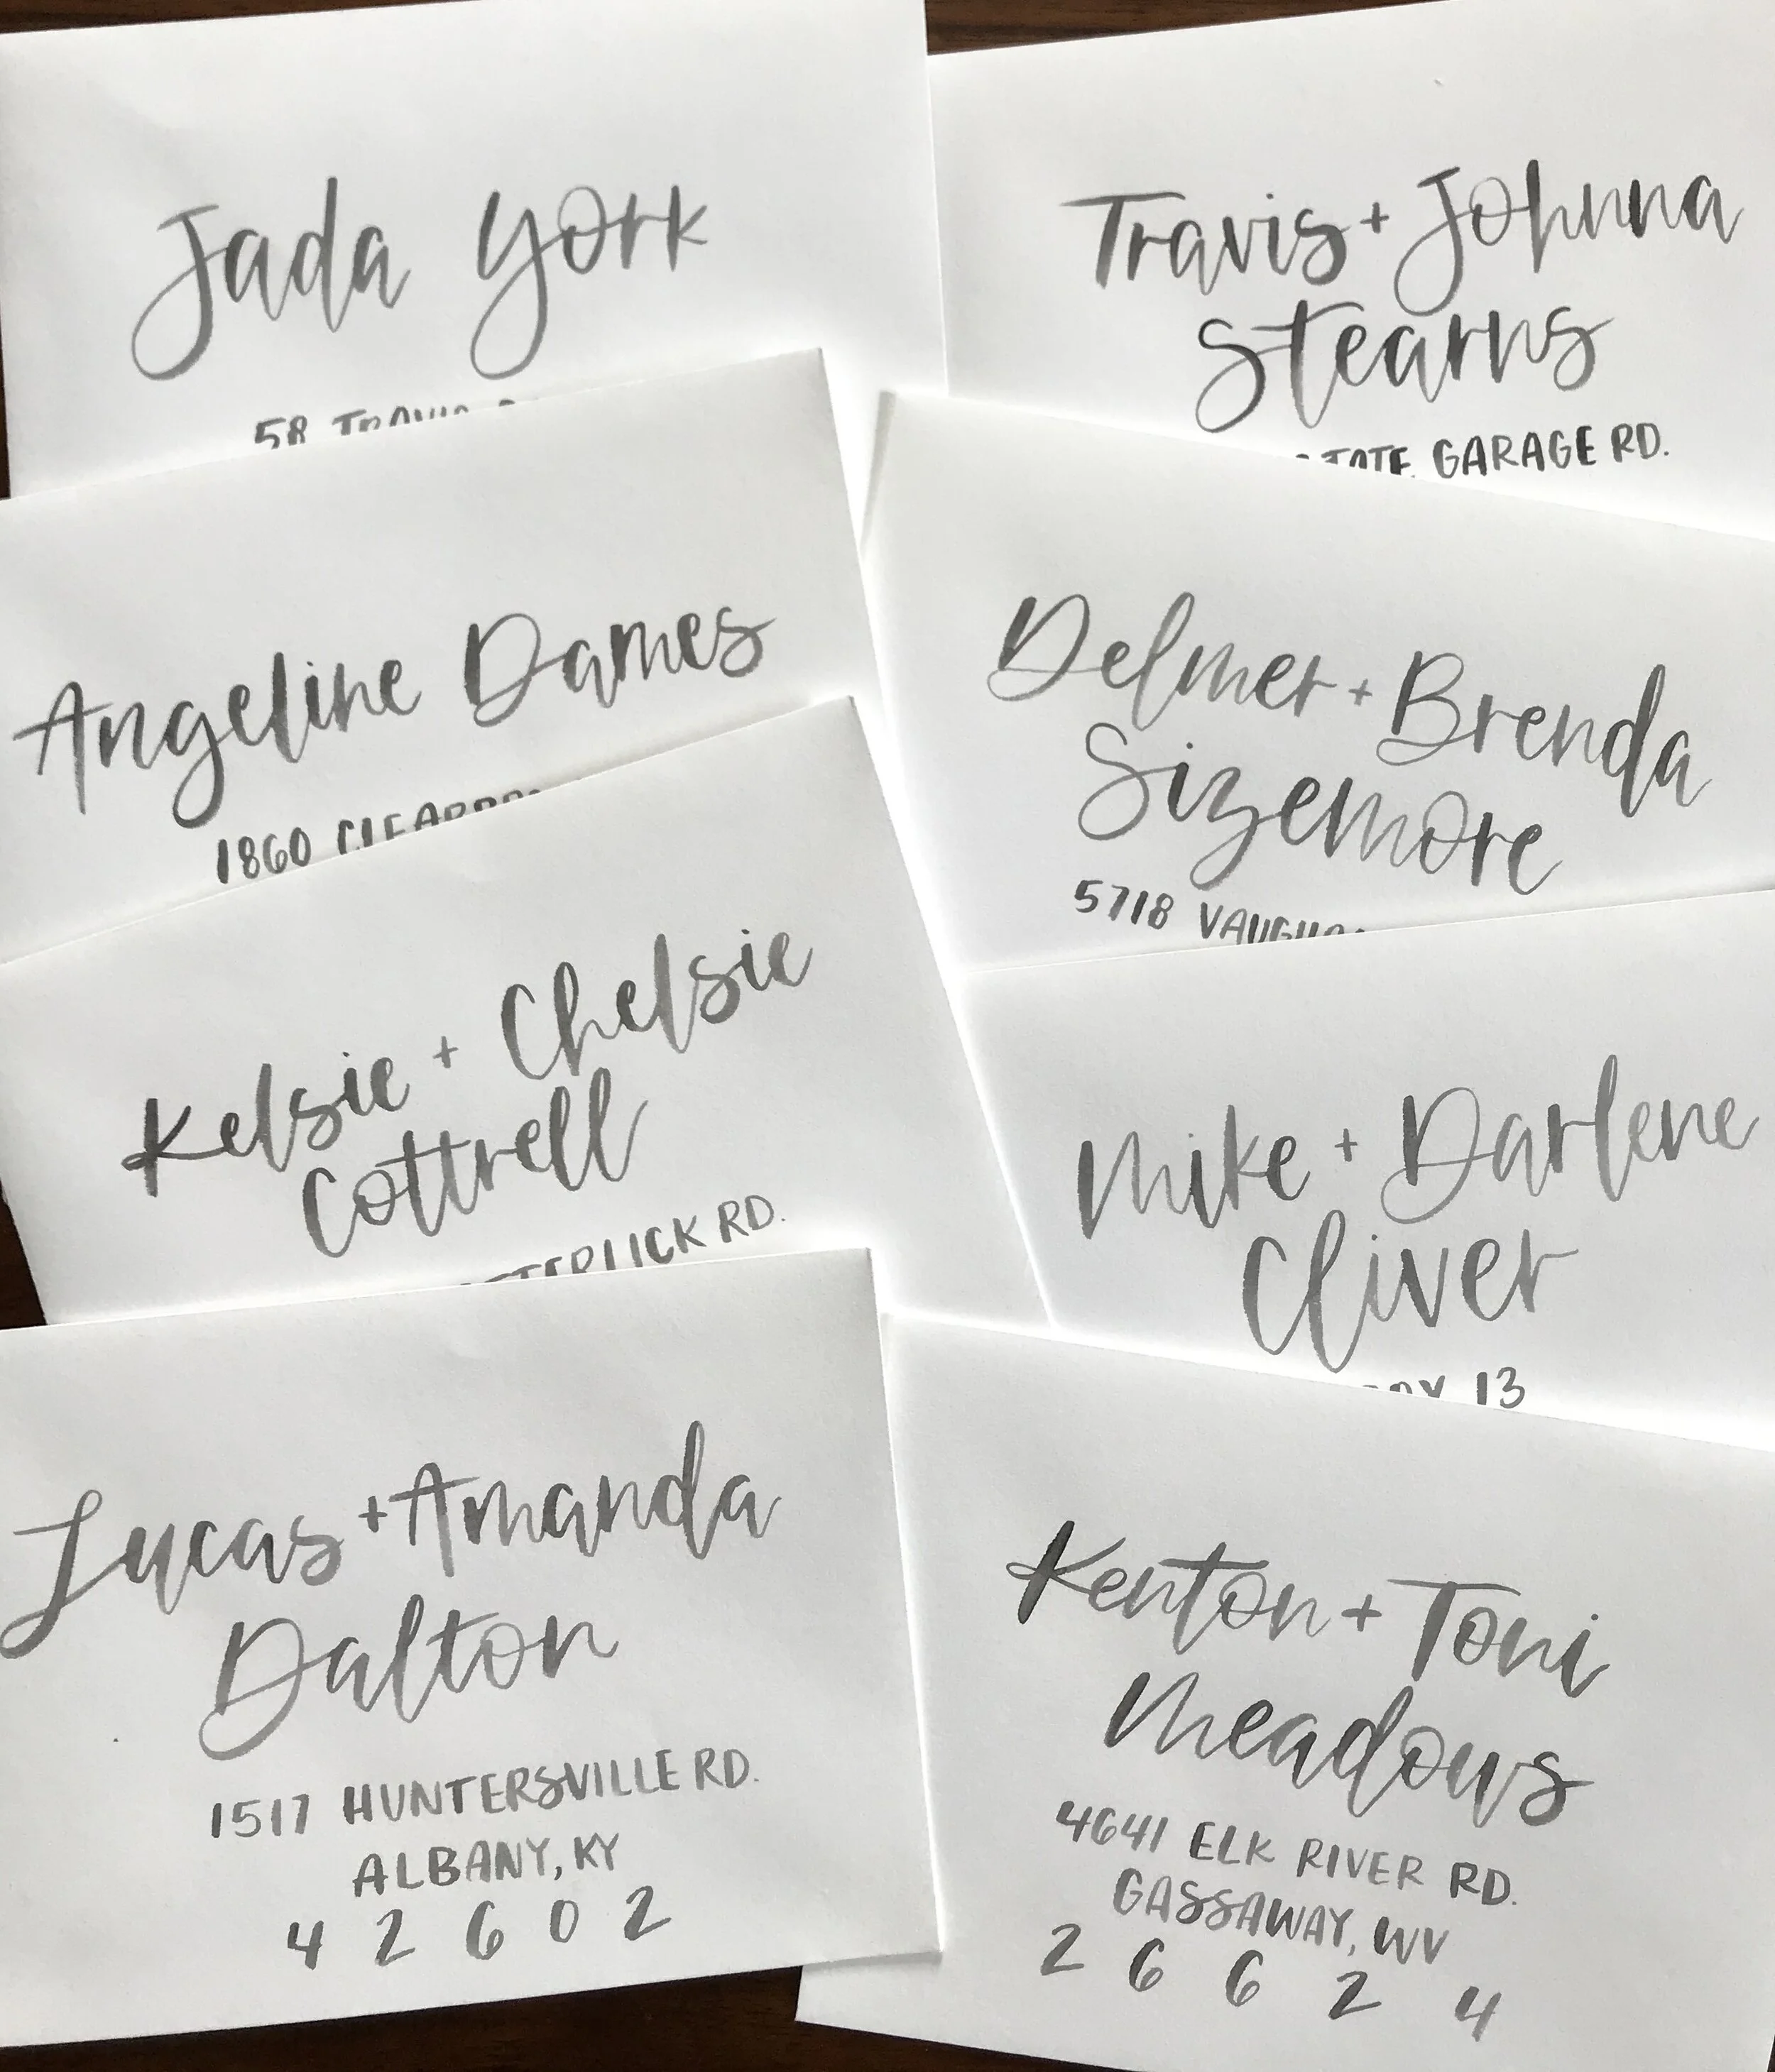 Jada York
58
Travis + Johnna
Stearns
GARAGE RD.
Angeline Dames
1860
Delmer + Brenda
Sizemore
5718
Kelsie + Chelsie
Cottrell
RD.
Mike + Darlene
Cliver
13
Lucas + Amanda
Dalton
1517 HUNTERSVILLE RD.
ALBANY, KY
4 2 6 0 2
Kenton + Toni
Meadows
4641 ELK RIVER RD.
GASSAWAY, WV
2 6 6 2 4